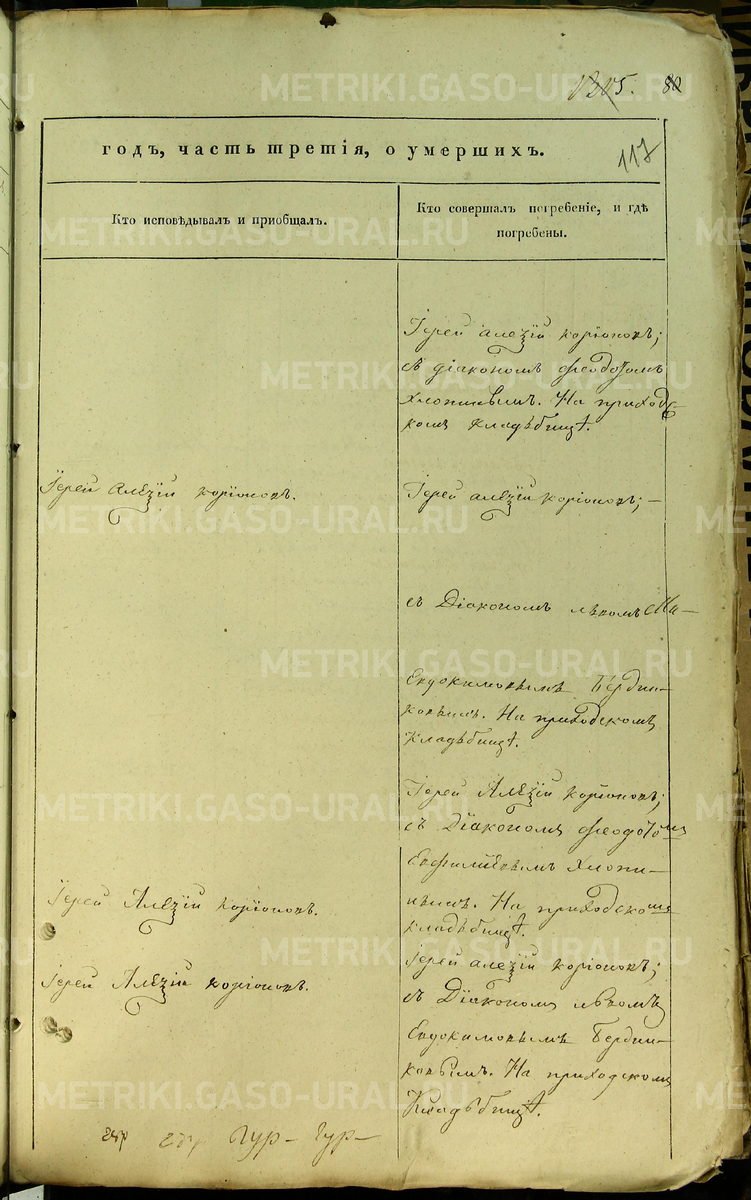 1305. 80
117
годъ, часть третія, о умершихъ.
Кто исповѣдывалъ и приобщалъ.
Кто совершалъ погребеніе, и гдѣ
погребены.
Іерей Алеѯій Коріоновъ;
съ діакономъ Ѳеодотомъ
Хлопинымъ. На приход-
комъ кладѣбищѣ.
Іерей Алеѯій Коріоновъ.
Іерей Алеѯій Коріоновъ; —
съ Діакономъ Львомъ
Евдокимовымъ Берди-
ковымъ. На приходскомъ
кладѣбищѣ.
Іерей Алеѯій Коріоновъ;
съ Діакономъ Ѳеодотомъ
Хлопи-
нымъ. На приходскомъ
кладѣбищѣ.
Іерей Алеѯій Коріоновъ.
Іерей Алеѯій Коріоновъ;
съ Діакономъ Львомъ
Евдокимовымъ Берди-
ковымъ. На приходскомъ
Кладѣбищѣ.
Іерей Алеѯій Коріоновъ.
METRIKI.GASO-URAL.RU